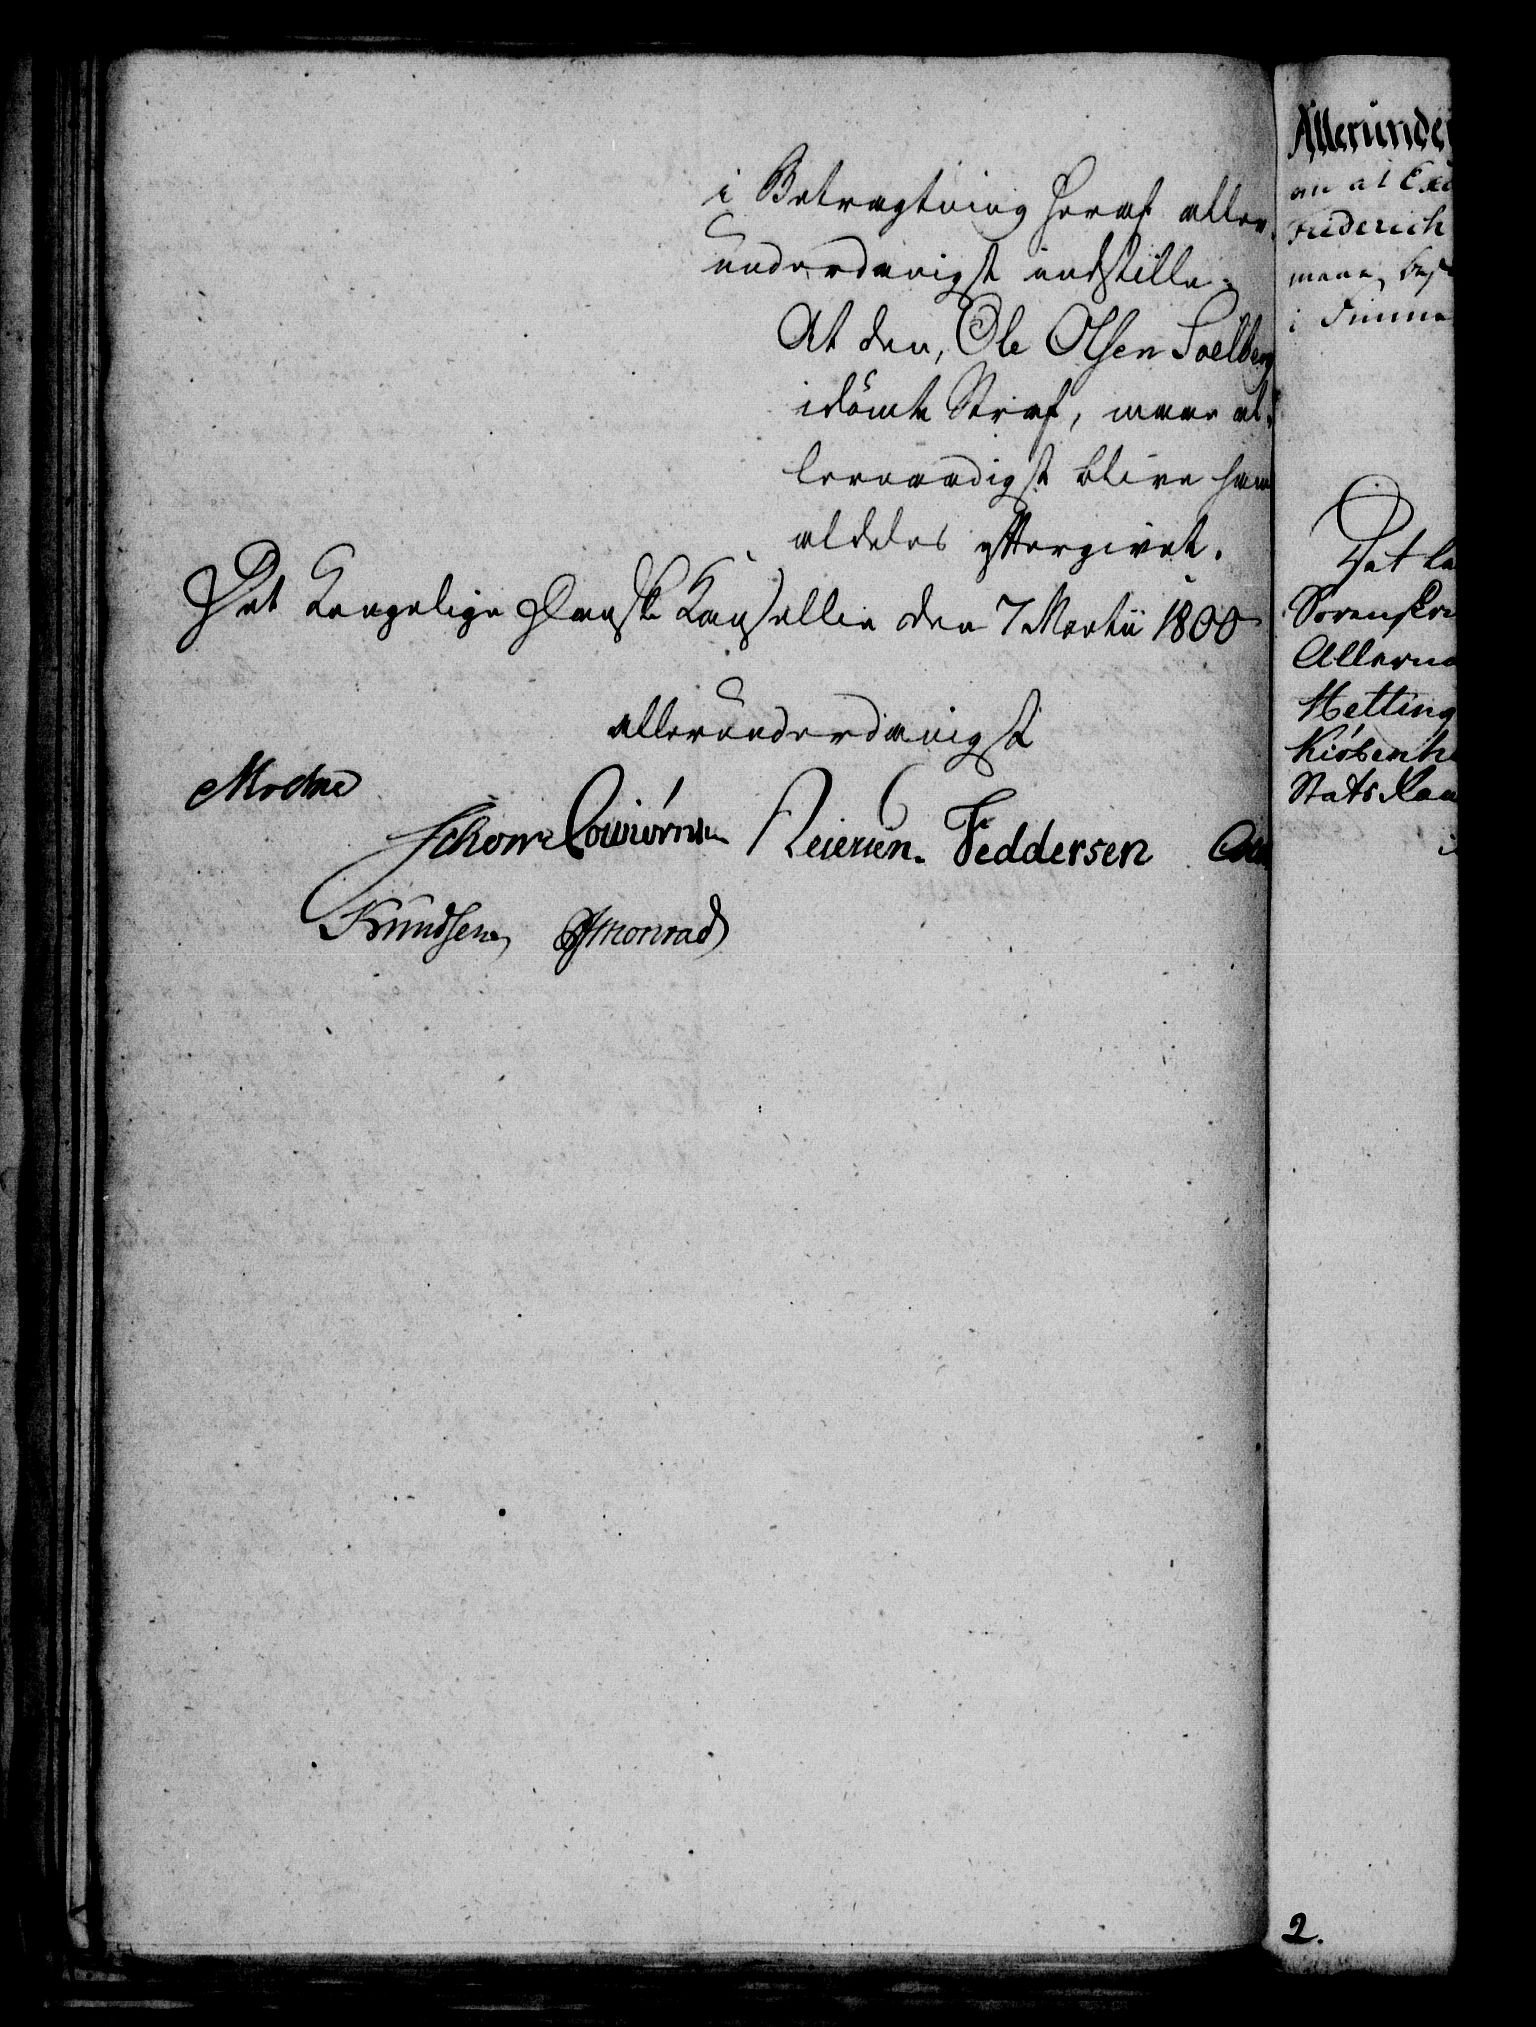 i Betragtning heraf aller-
underdanigst indstille:
At den, Ole Olsen Soelberg
idömte Straf, maae al-
lernaadigst blive ham
aldeles eftergivet.
Det Kongelige Danske Kancellie den 7 Martii 1800
allerunderdanigst
Moltke
Schow Cowiörnsen Reiersen. Feddersen
Knudsen Monrad
Allerunde
Friderich
i Finm
Det ka
Sorenskri
Allerna
Metting
Kiöbenh
Stats Raa
2.